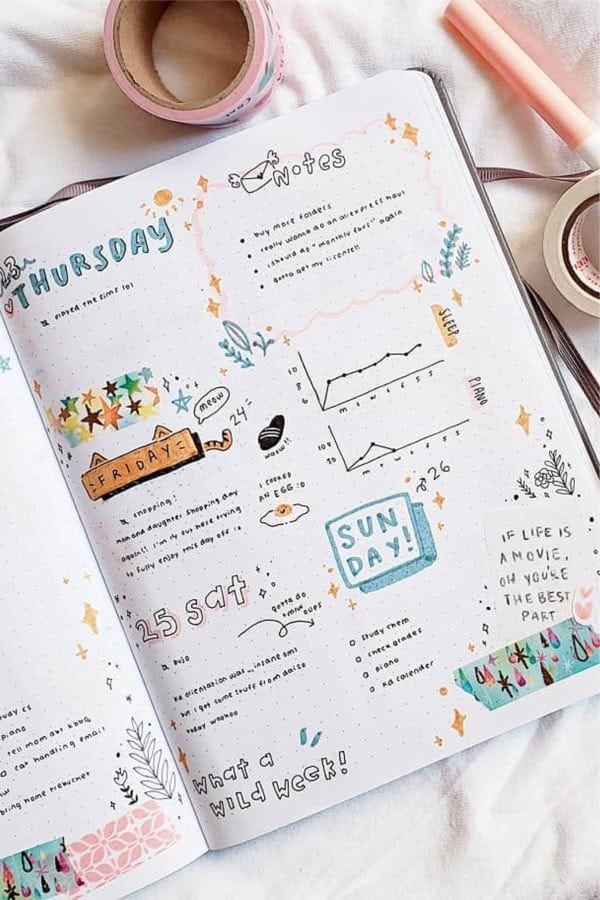 23
THURSDAY
played the sims lol
meow
24
FRIDAY
wow!!
shopping:
mom and daughter shopping day
again!! i'm out here trying
to fully enjoy this day off :D
I COOKED
AN EGG :0
25 sat
gotta do
BUJO
ka orientation was.. insane omi
but i got some stuff from daiso
today woohoo
what a
wild week!
Notes
buy more folders
really wanna do an aliexpress haul
i should do "monthly favs" again
gotta get my license!!
SLEEP
10
8
6
m t w t f s s
PIANO
100
30
m t w t f s s
26
SUN
DAY!
study chem
check grades
piano
ka calender
IF LIFE IS
A MOVIE,
OH YOU'RE
THE BEST
PART
piano
tell mom abt kbbq
cat handling email
bring home